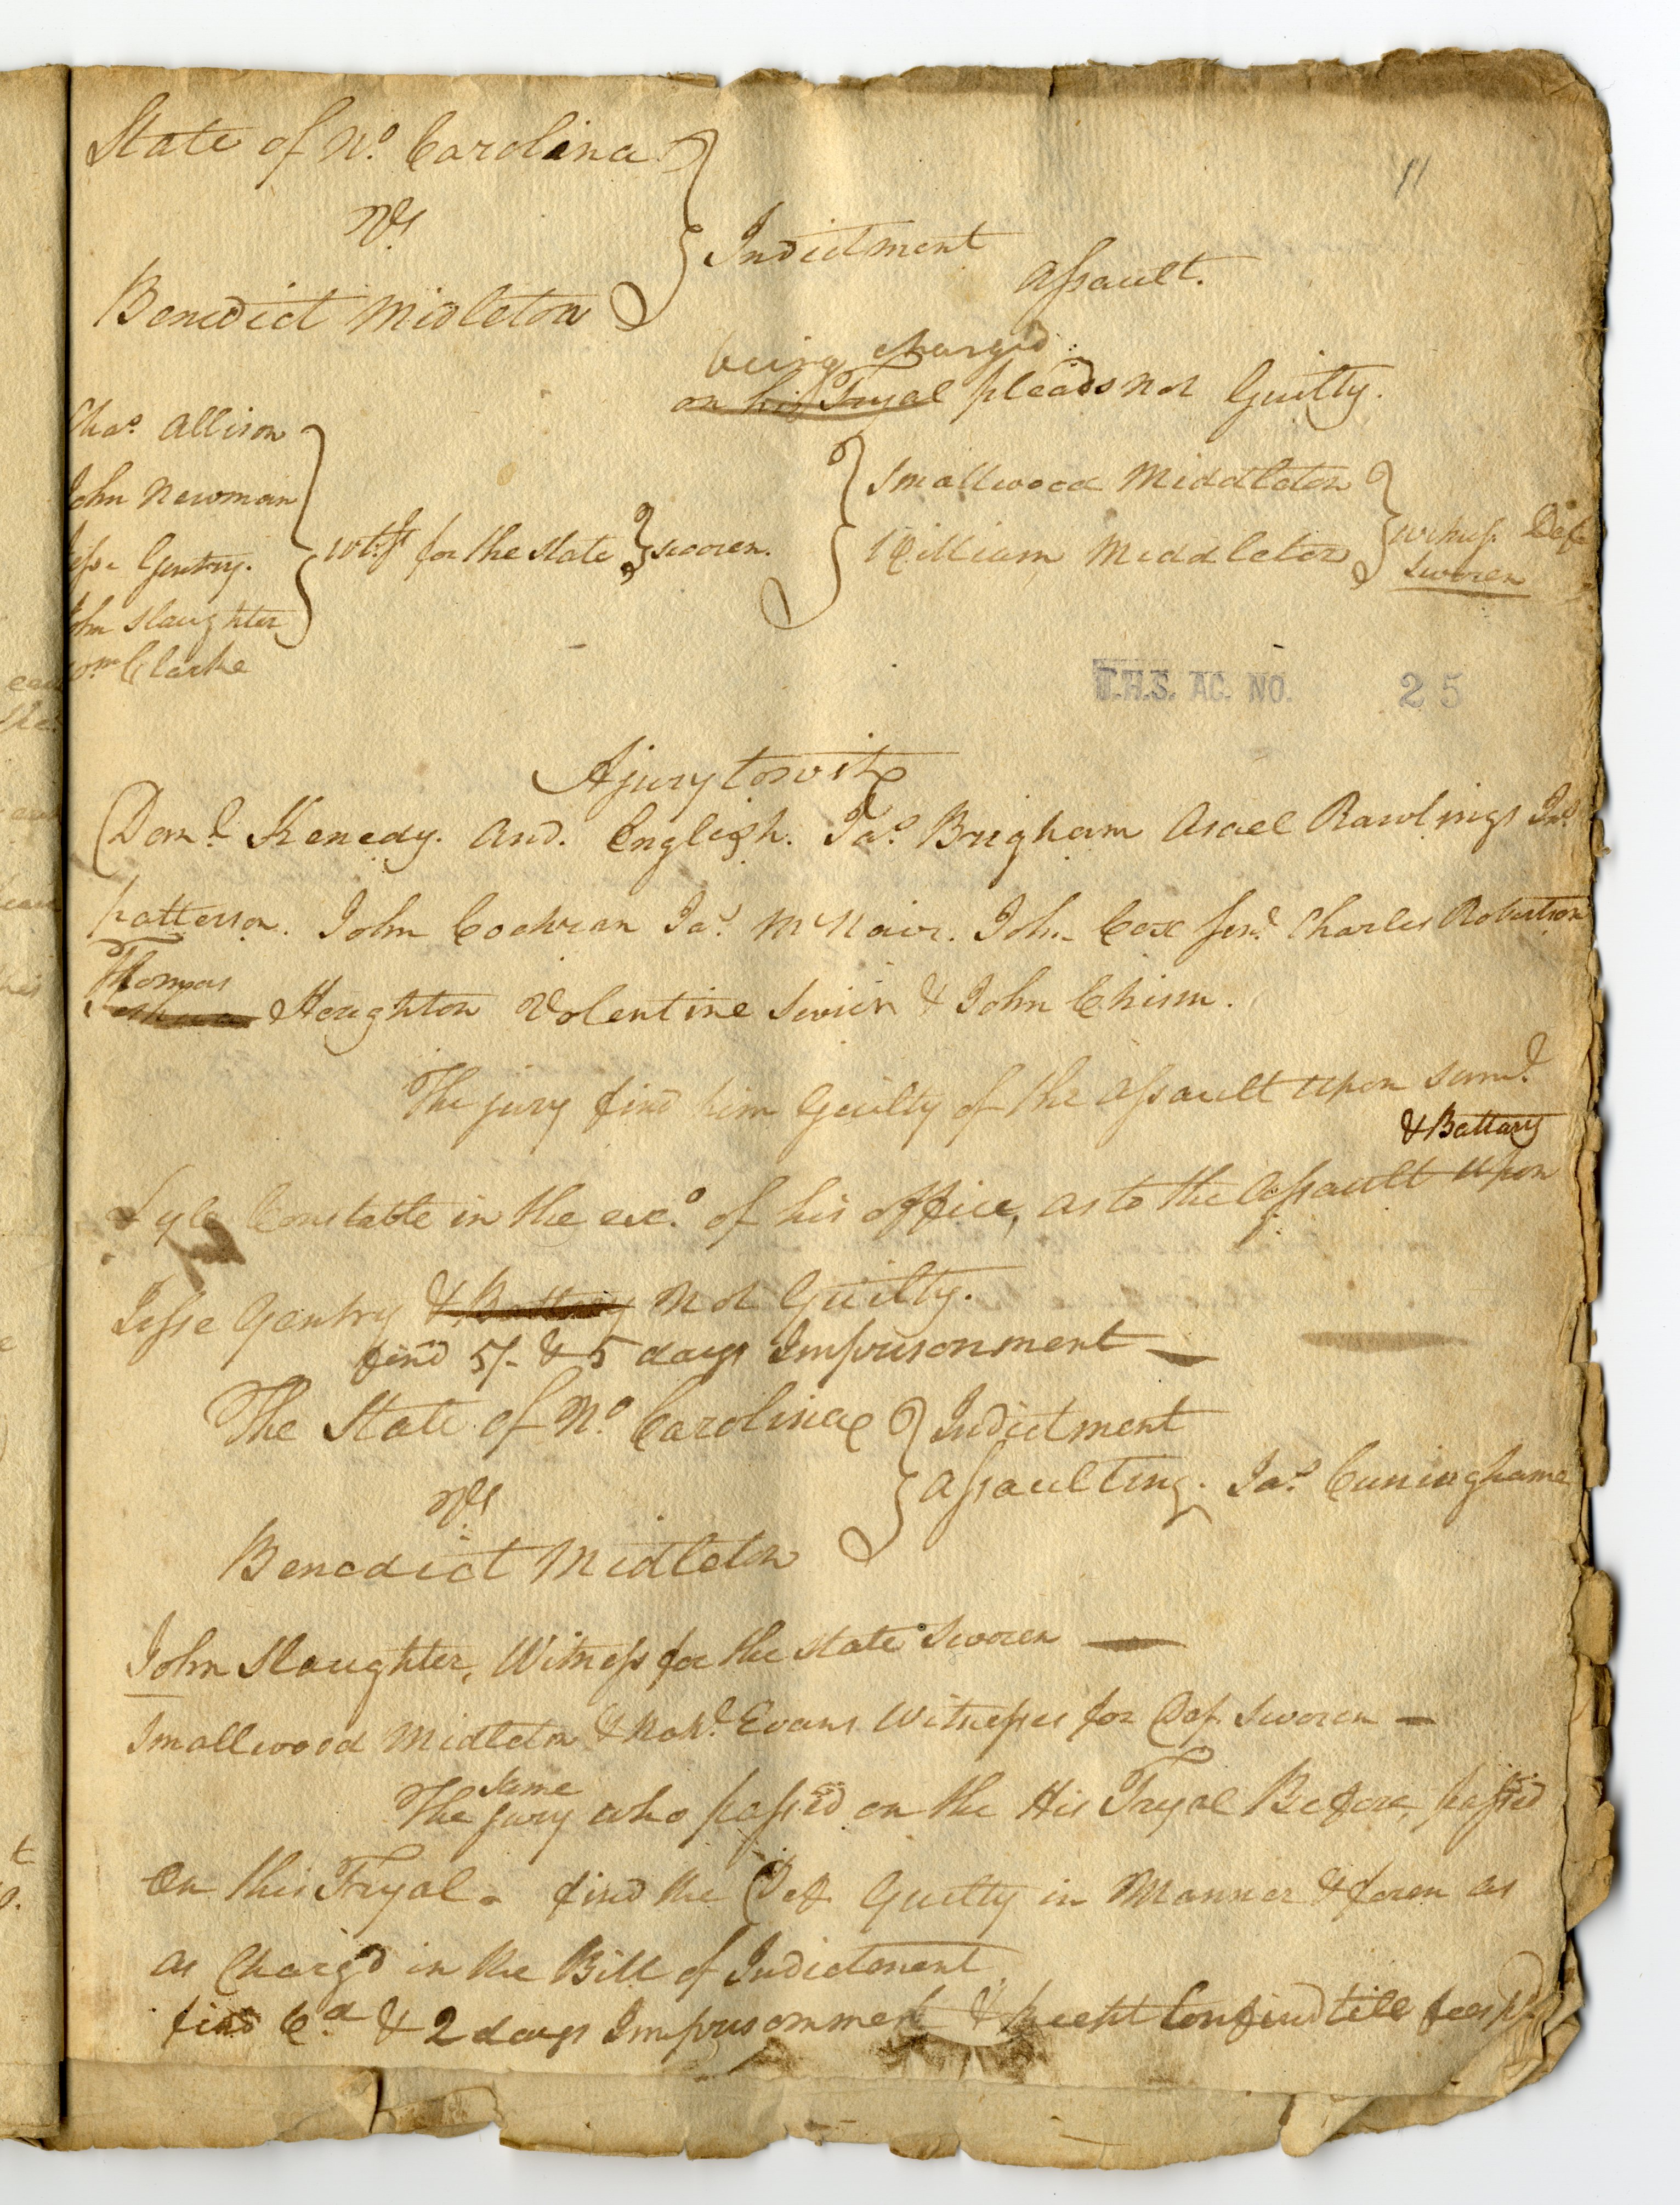 11
State of No. Carolina
vs
Benedict Midleton
Indictment
Assault.
being chargd
on his Tryal pleads not Guilty.
Chas. Allison
John Newman
Jesse Gentry.
John Slaughter
Wm Clarke
wits for the State
sworen.
Smallwood Middleton
William Middleton
witness Def
Sworen
T.H.S. AC. NO. 25
A jury to wit
Danl. Kenedy. And. English. Jas. Brigham Asael Rawlings Jas.
patterson. John Cochran Jas. McNair. John Cox senr. Charles Robertson
Thomas
Joshua Houghton Volentine Sevier & John Chism.
The jury find him Guilty of the assault upon Saml.
& Battary
Lyle Constable in the exo. of his office, as to the assault upon
Jesse Gentry & Battrey not Guilty.
find 5/- & 5 days Imprisonment
The State of No. Carolina
vs
Benedict Midleton
Indictment
assaulting. Jas. Cuninghame
John Slaughter, Witness for the State Sworen
Smallwood Midleton & Nathl. Evans Witnesses for Def Sworen
same
The jury who passed on the His Tryal Before, passed
on this Tryal. find the Def. Guilty in Manner & form as
as Charg'd in the Bill of Indictment
find 6d & 2 days Imprisonment & keept Confind till fees pd.